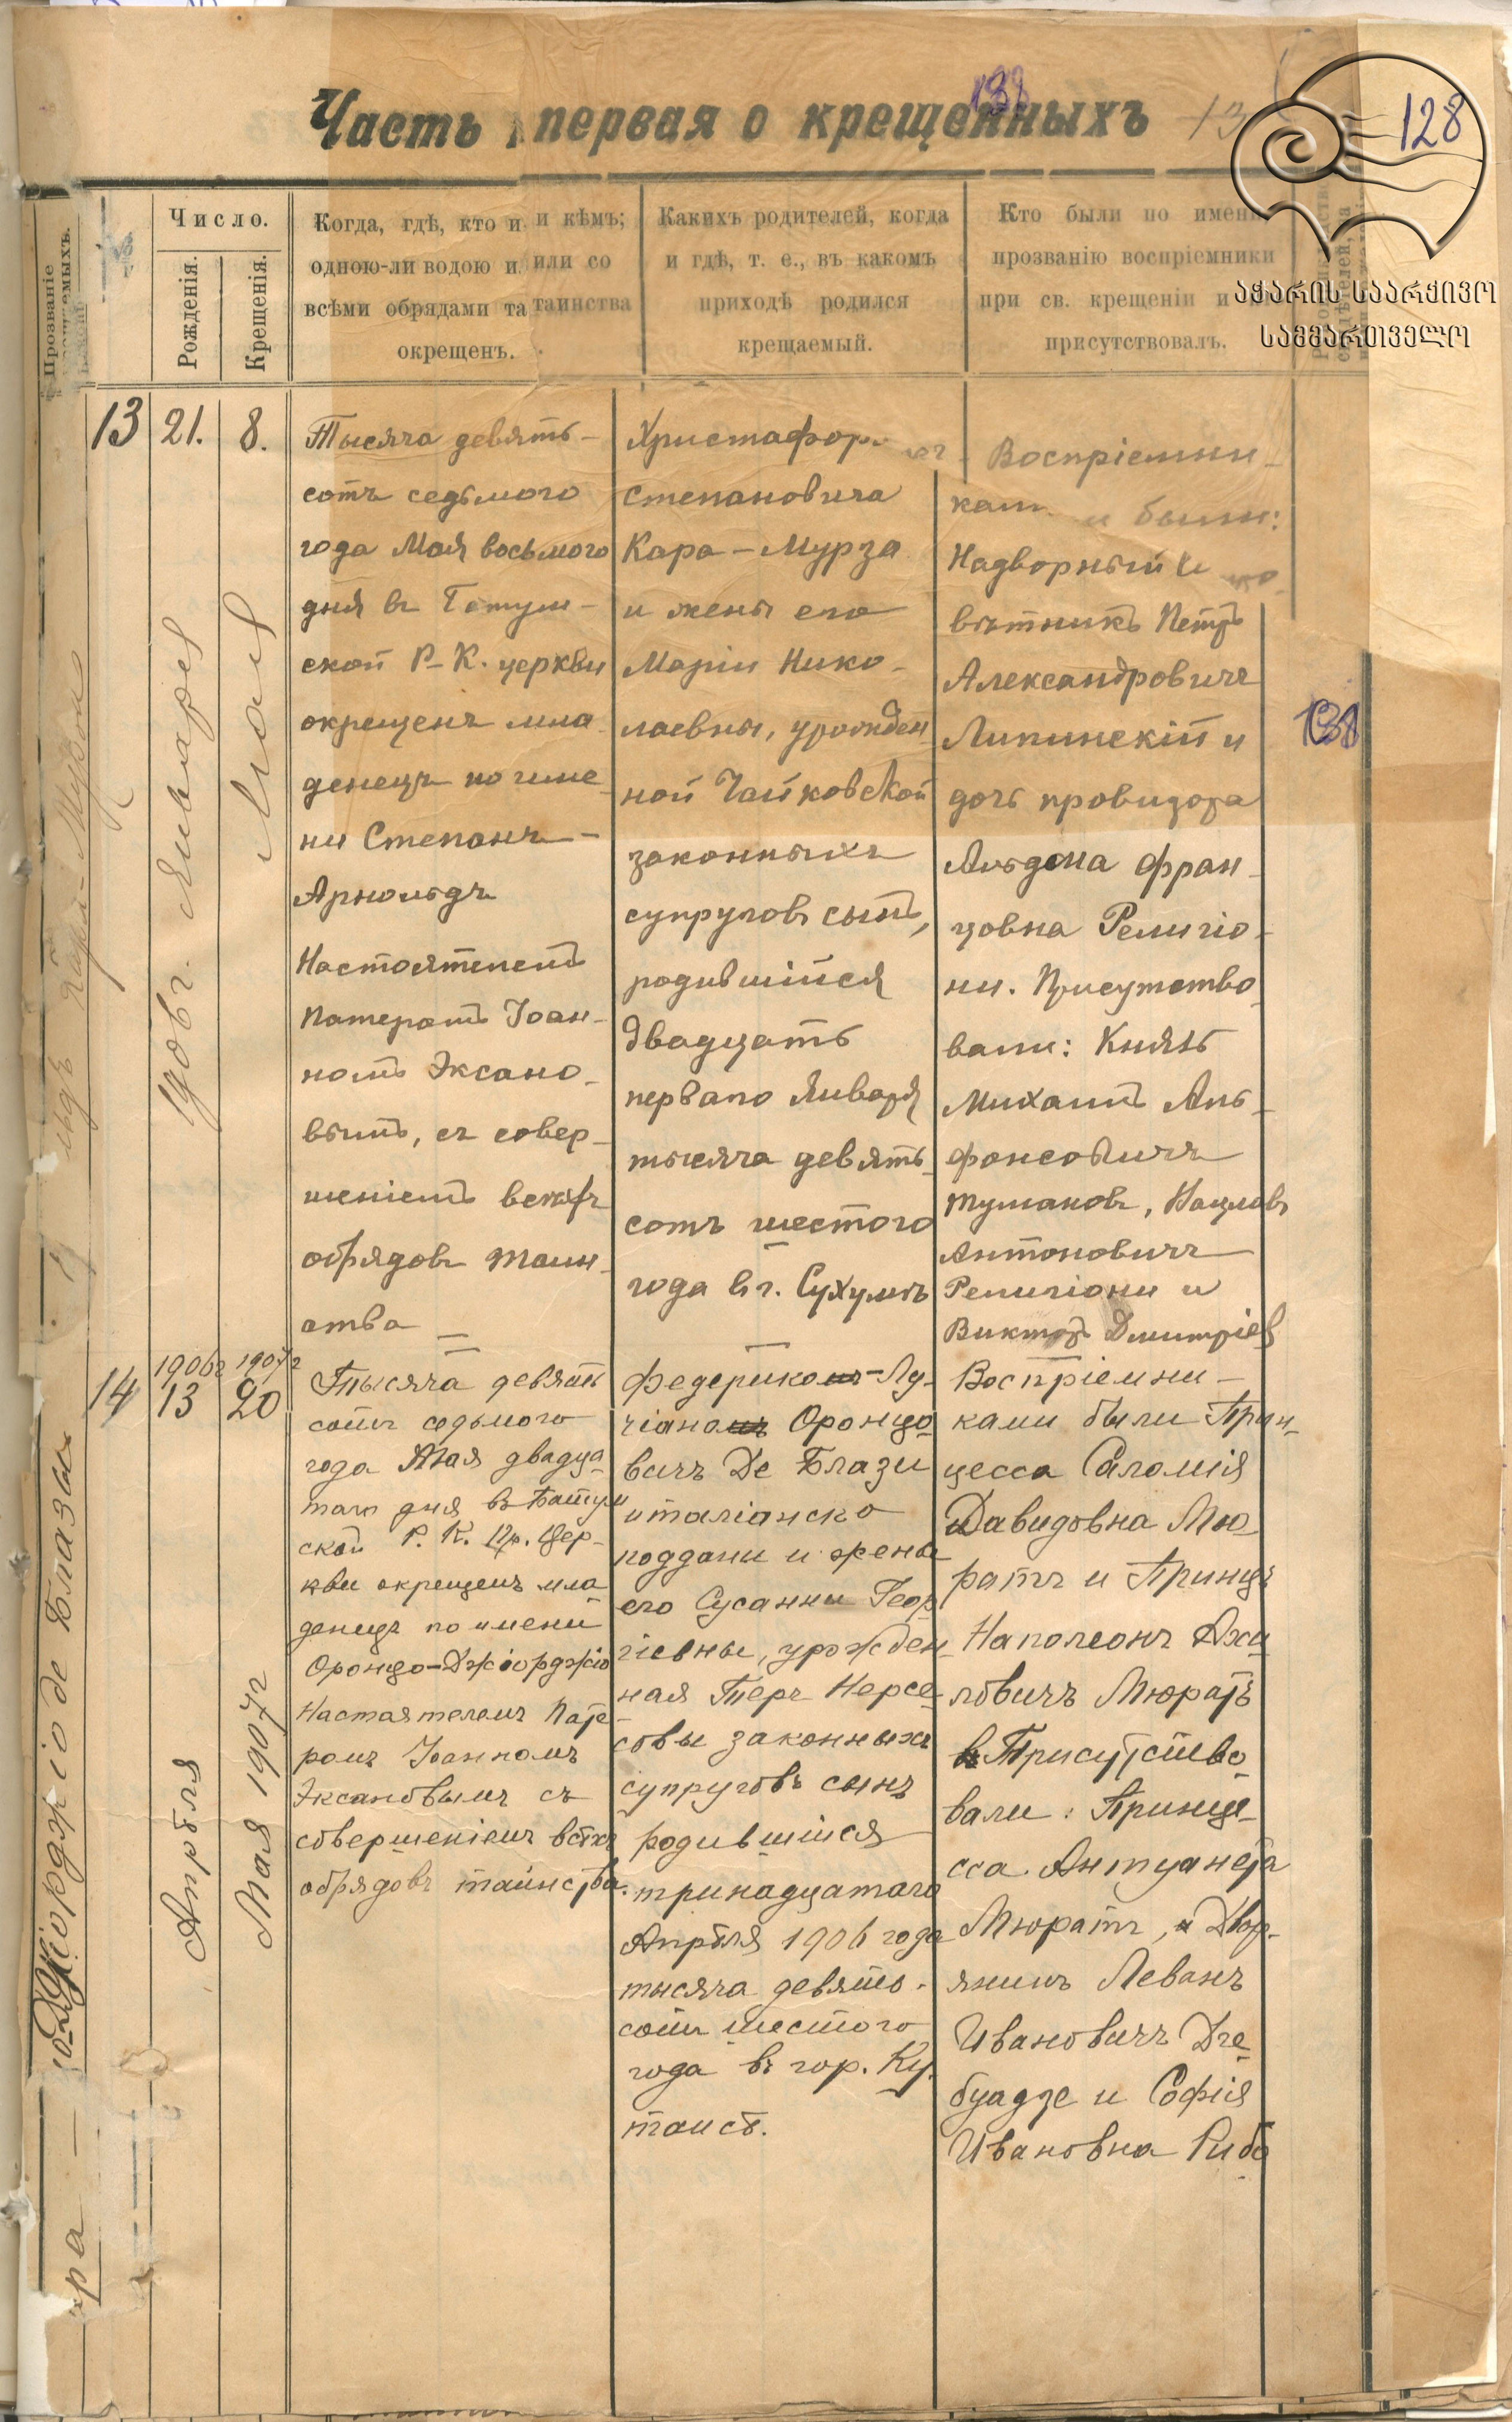 138
Часть первая о крещенныхъ
128
აჭარის საარქივო
სამმართველო
Прозваніе
Число.
Рожденія.
Крещенія.
Когда, гдѣ, кто и и кѣмъ;
одною-ли водою и или со
всѣми обрядами та таинства
окрещенъ.
Какихъ родителей, когда
и гдѣ, т. е., въ какомъ
приходѣ родился
крещаемый.
Кто были по имени
прозванію воспріемники
при св. крещеніи и
присутствовалъ.
13
21.
8.
Января
Мая
Тысяча девять-
сотъ седьмого
года Мая восьмого
дня въ Батум-
ской Р-К. церкви
окрещенъ мла-
денецъ по име-
ни Степанъ-
Арнольдъ
Настоятелемъ
Патеромъ Іоан-
номъ Эксано-
вымъ, съ совер-
шеніемъ всѣхъ
обрядовъ таин-
ства
Христафор
Степановича
Кара-Мурза
и жены его
Маріи Нико-
лаевны, урожден-
ной Чайковской
законныхъ
супруговъ сынъ,
родившійся
двадцать
перваго Января
тысяча девять-
сотъ шестого
года въ г. Сухумѣ
Воспріемни-
ками были:
Надворный Со
вѣтникъ Петръ
Александровичъ
Липинскій и
дочь провизора
Альдона Фран-
цовна Религіо-
ни. Присутство-
вали: Князь
Михаилъ Аль-
фонсовичъ
Тумановъ, Вацлавъ
Антоновичъ
Религіони и
Викторъ Дмитріев
138
14
1906г
13
1907г
20
Апрѣля
Мая 1907г
Джіорджіо де Блазы
Тысяча девять
сотъ седьмого
года Мая двадца-
таго дня въ Батум
ской Р. К. Пр. Цер-
кви окрещенъ мла
денецъ по имени
Оронцо-Джіорджіо
Настаятелемъ Пате-
ромъ Іоанномъ
Эксановымъ съ
совершеніемъ всѣхъ
обрядовъ таинства.
Федерико-Лу-
чіано Оронцо-
вичъ Де Блази
италіанско
поддани и жены
его Сусанны Геор
гіевны, урожден-
ная Теръ Нерсе-
совы законныхъ
супруговъ сынъ
родившійся
тринадцатаго
Апрѣля 1906 года
тысяча девять-
сотъ шестого
года въ гор. Ку-
таисѣ.
Воспріемни-
ками были Прин-
цесса Саломія
Давидовна Мю-
ратъ и Принцъ
Наполеонъ Аки
ловичъ Мюратъ
Присутство-
вали: Принце-
сса Антуанета
Мюратъ, и Двор-
янинъ Леванъ
Ивановичъ Дге-
буадзе и Софія
Ивановна Рибо